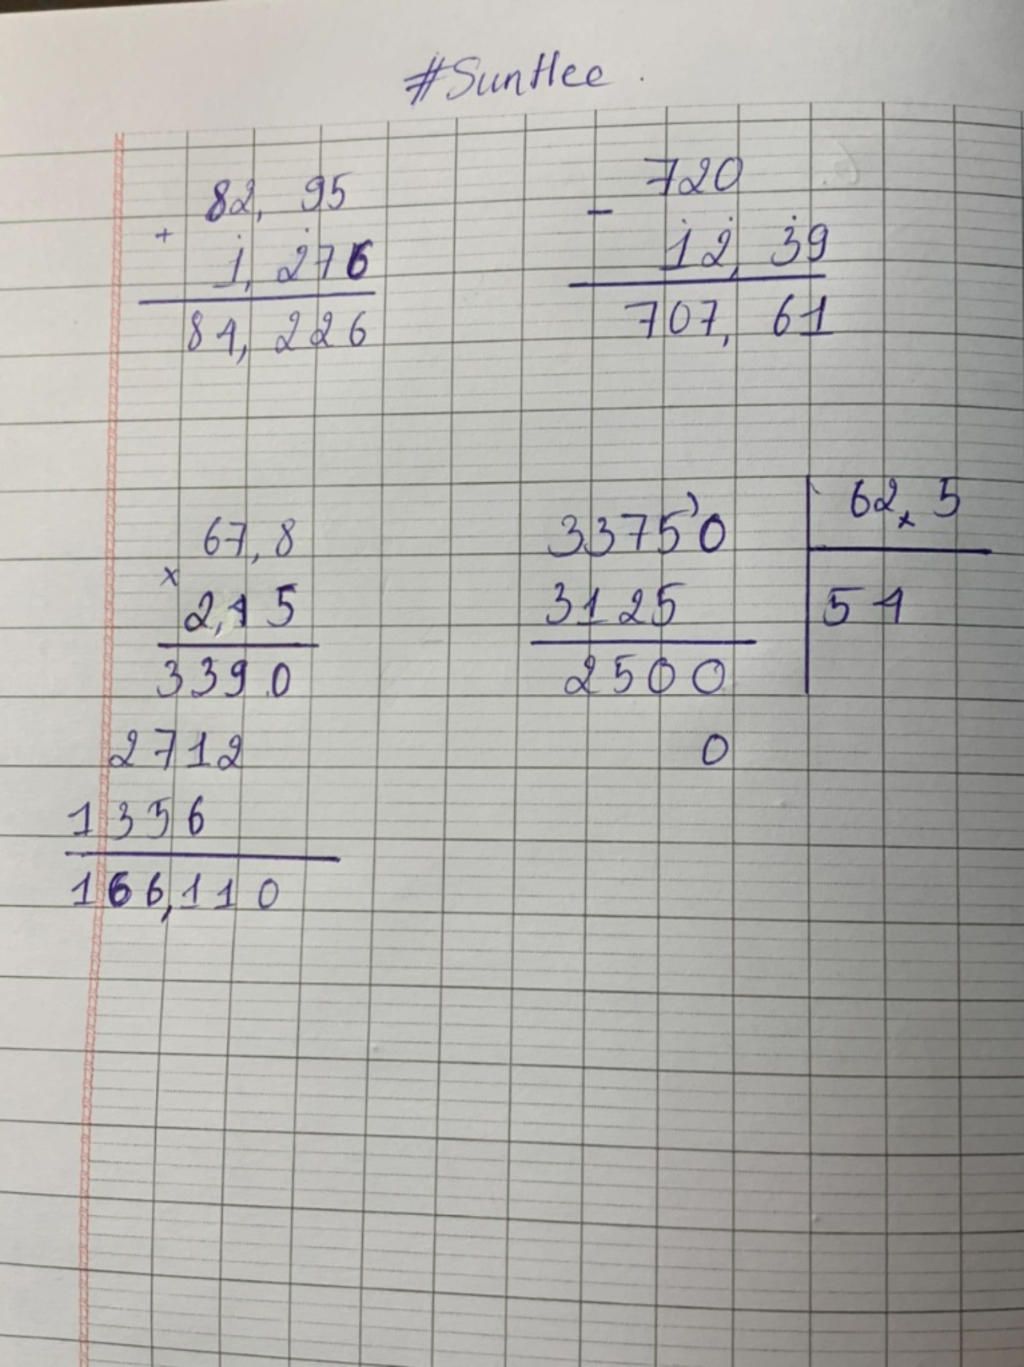 #SunHee.
82,95
+
1,276
84,226
720
-
12,39
707,61
67,8
x
2,45
3390
2712
1356
166,110
3375'0 62,5
3125 54
2500
0